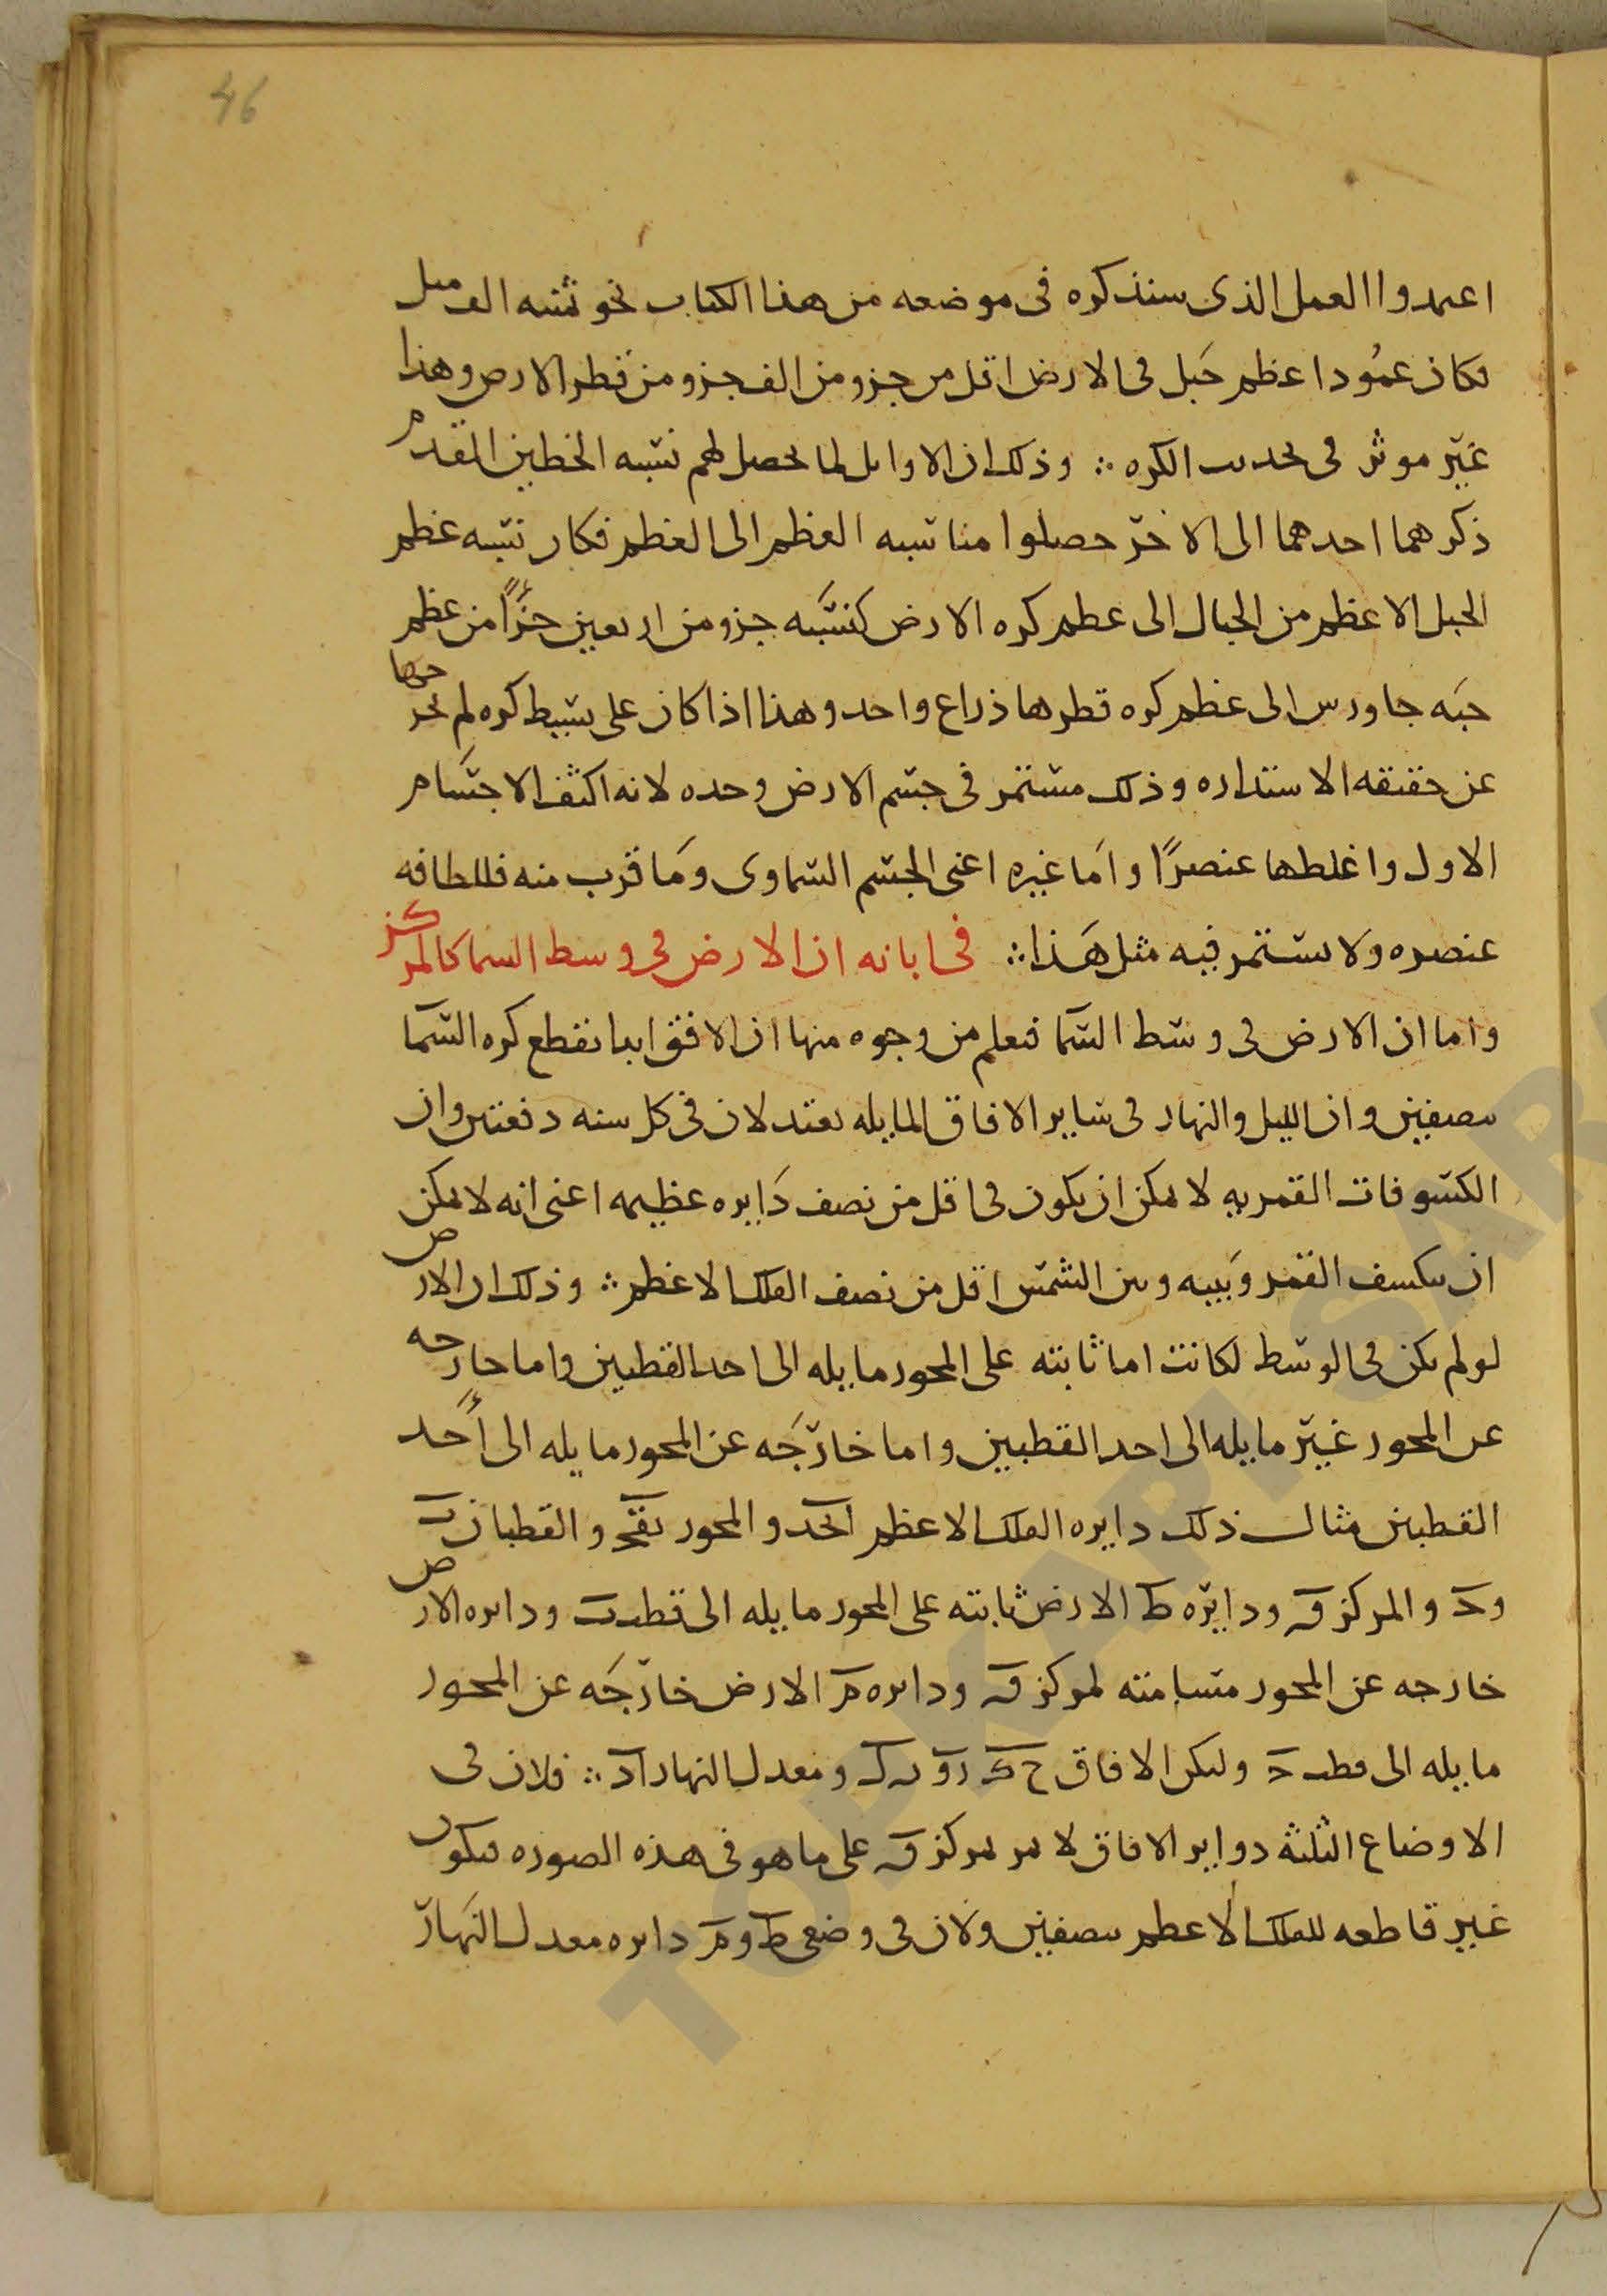 46
اعتمدوا العمل الذى سنذكره فى موضعه من هذا الكتاب نحو ثمنيه الف ميل
فكان عمود اعظم جبل فى الارض اقل من جزو من الف جزو من قطر الارض وهذا
غير موثر فى تحديب الكره ∴ وذلك ان الاوايل لما تحصل لهم نسبه الخطين المقدم
ذكرهما احدهما الى الاخر حصلوا منها نسبه العظم الى العظم فكان نسبه عظم
الجبل الاعظم من الجبال الى عظم كره الارض كنسبه جزو من اربعين جزًا من عظم
حبه جاورس الى عظم كره قطرها ذراع واحد وهذا اذا كان على بسيط كره لم يخرجها
عن حقيقه الاستداره وذلك مستمر فى جسم الارض وحده لانه اكثف الاجسام
الاول واغلطها عنصرًا واما غيره اعنى الجسم السماوى وما قرب منه فللطافه
عنصره ولا يستمر فيه مثل هذا ∴ فى ابانه ان الارض فى وسط السما كالمركز
واما ان الارض فى وسط السما فيعلم من وجوه منها ان الافق ابدا يقطع كره السما
بنصفين وان الليل والنهار فى ساير الافاق المايله يعتدلان فى كل سنه دفعتين وان
الكسوفات القمريه لا يمكن ان يكون فى اقل من نصف دايره عظيمه اعنى انه لا يمكن
ان ينكسف القمر وبينه وبين الشمس اقل من نصف الفلك الاعظم ∴ وذلك ان الارض
لو لم يكن فى الوسط لكانت اما ثابته على المحور مايله الى احد القطبين واما خارجه
عن المحور غير مايله الى احد القطبين واما خارجه عن المحور مايله الى أحد
القطبين مثال ذلك دايره الفلك الاعظم ابجد والمحور بقج والقطبان ب
وج والمركز ق ودايره ط الارض ثابته على المحور مايله الى قطب ب ودايره الارض
خارجه عن المحور مسامته لمركز ق ودايره م الارض خارجه عن المحور
مايله الى قطب ج وليكن الافاق ومعدل النهار اد ∴ فلان فى
الاوضاع الثلثه دواير الافاق لا تمر بمركز ق على ما هو فى هذه الصوره فيكون
غير قاطعه للفلك الاعظم بنصفين ولان فى وضعى ط وم دايره معدل النهار